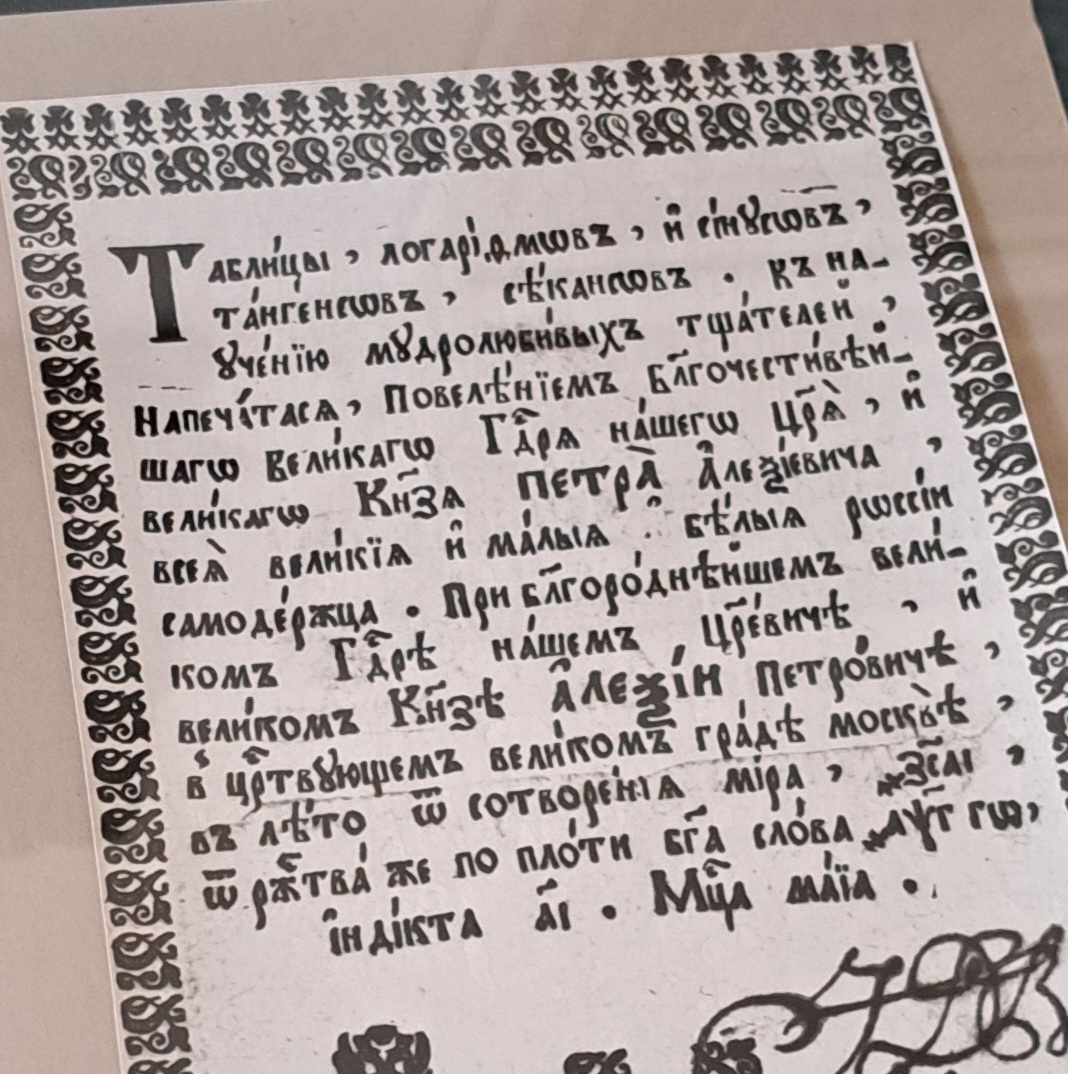 Таблицы, логарі́ѳмѡвъ, и҆ сі́нꙋсѡвъ,
та́нгенсѡвъ, сѣ́кансѡвъ. къ на-
ꙋче́нїю мꙋдролюби́выхъ тща́телей,
Напеча́тасѧ, повелѣ́нїемъ бл҃гочести́вѣй-
шагѡ вели́кагѡ Гдⷭ҇рѧ на́шегѡ Цр҃ѧ̀, и҆
вели́кагѡ Кн҃зѧ ПЕТРА̀ А҆леѯі́евича,
всеѧ̀ вели́кїѧ и҆ ма́лыѧ и҆ бѣ́лыѧ рѡссі́и
самоде́ржца. При бл҃горо́днѣйшемъ вели́-
комъ Гдⷭ҇рѣ на́шемъ Цр҃е́вичѣ, и҆
вели́комъ Кн҃зѣ А҆леѯі́и Петро́вичѣ,
в̾ црⷭ҇твꙋющемъ вели́комъ гра́дѣ москвѣ̀,
въ лѣ́то ѿ сотворе́нїѧ мі́ра, ҂зс҃аі,
ѿ рж҃тва́ же по пло́ти бг҃а сло́ва ҂аѱ҃г гѡ,
і҆нді́кта а҃і. Мцⷭ҇а ма́їа.